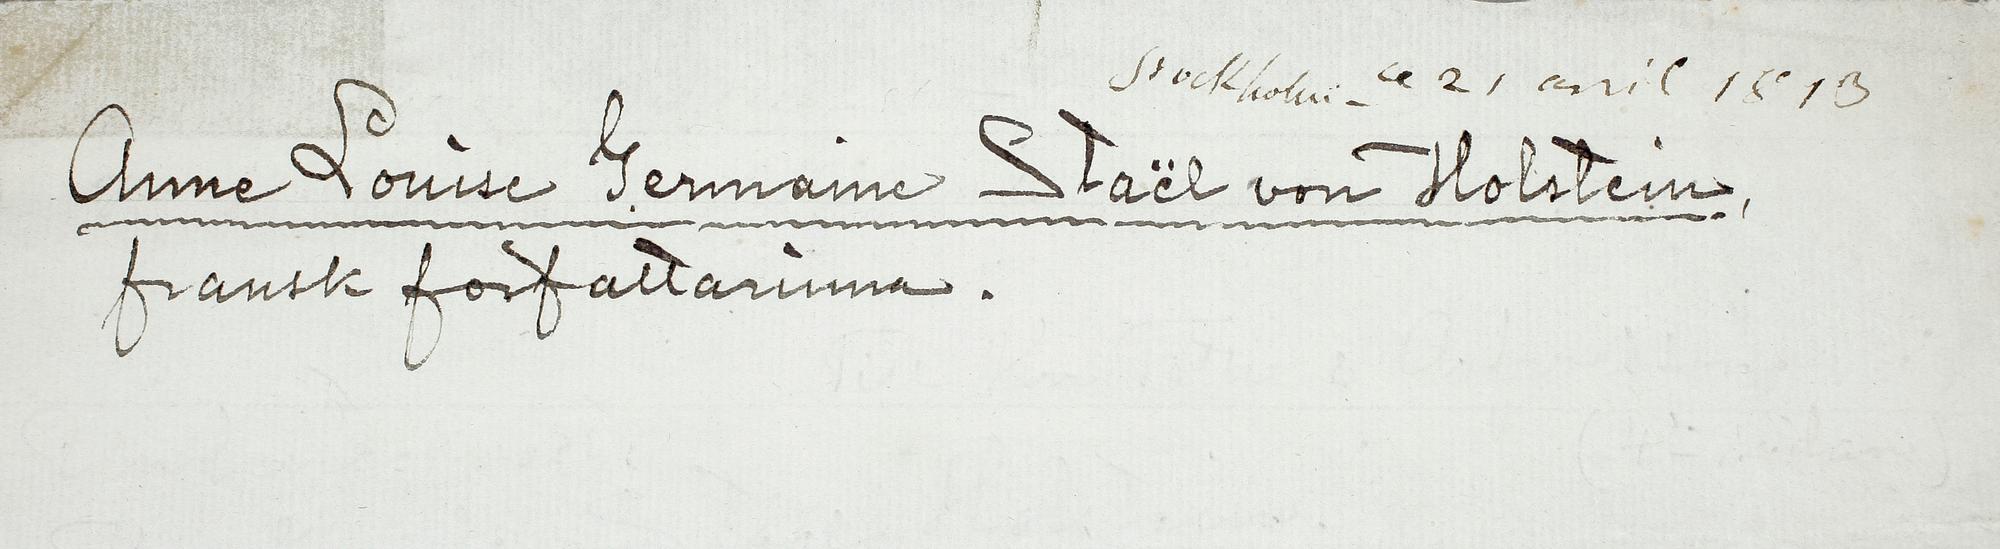 Stockholm - ce 21 avril 1813
Anne Louise Germaine Staël von Holstein,
fransk författarinna.